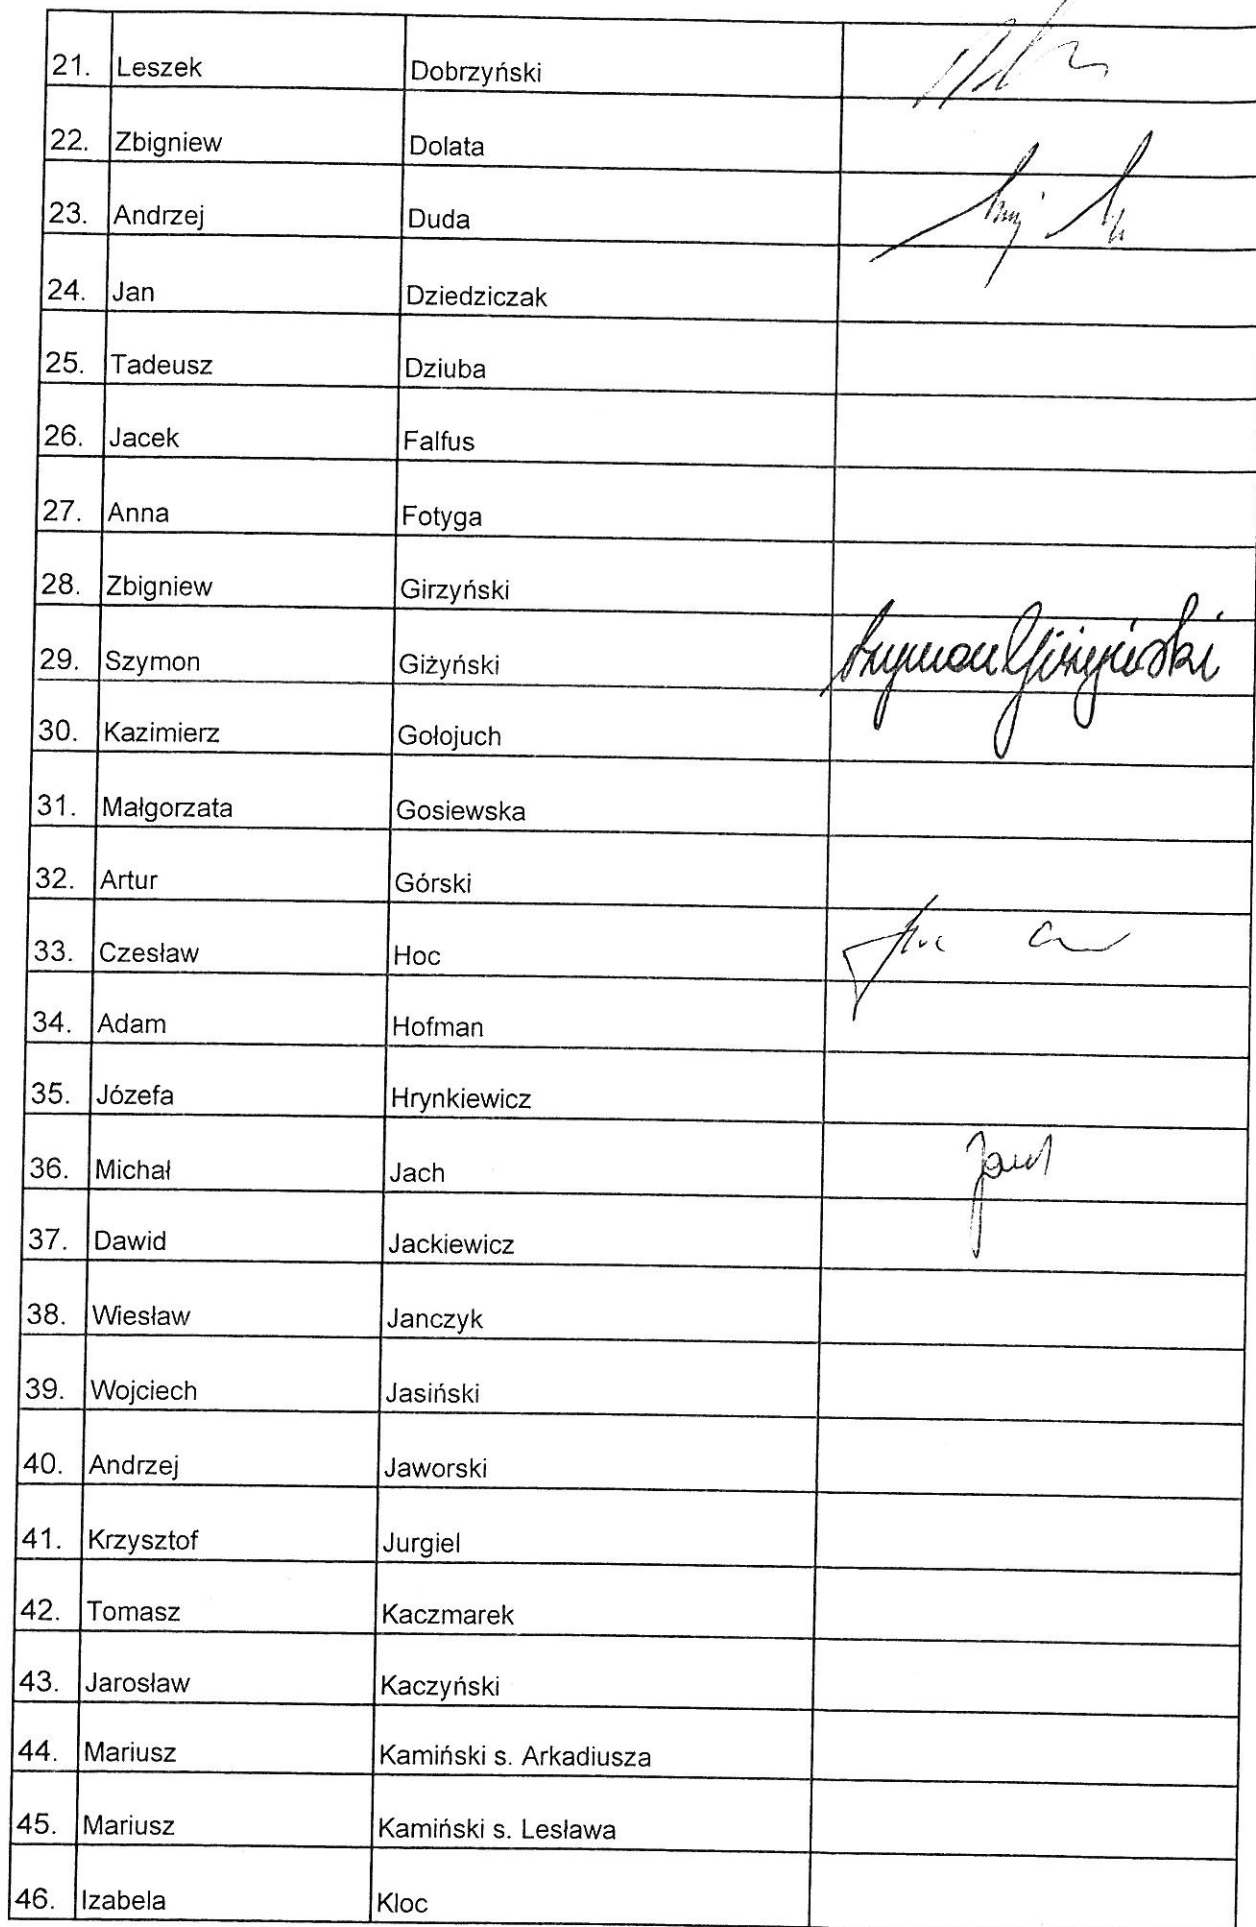 21. Leszek Dobrzyński
22. Zbigniew Dolata
23. Andrzej Duda
24. Jan Dziedziczak
25. Tadeusz Dziuba
26. Jacek Falfus
27. Anna Fotyga
28. Zbigniew Girzyński
29. Szymon Giżyński Szymon Giżyński
30. Kazimierz Gołojuch
31. Małgorzata Gosiewska
32. Artur Górski
33. Czesław Hoc
34. Adam Hofman
35. Józefa Hrynkiewicz
36. Michał Jach Jach
37. Dawid Jackiewicz
38. Wiesław Janczyk
39. Wojciech Jasiński
40. Andrzej Jaworski
41. Krzysztof Jurgiel
42. Tomasz Kaczmarek
43. Jarosław Kaczyński
44. Mariusz Kamiński s. Arkadiusza
45. Mariusz Kamiński s. Lesława
46. Izabela Kloc